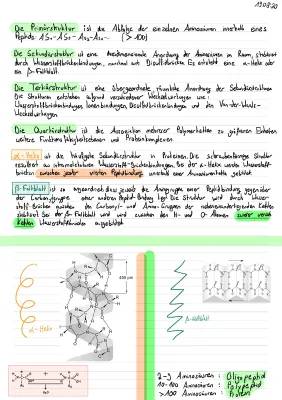 13.08.20
Die Primärstruktur ist die Abfolge der einzelnen Aminosäuren innerhalb eines
Peptids AS₁-AS₂- AS₃-AS₄... (>100)
Die Sekundärstruktur ist eine dreidimensionale Anordnung der Aminosäuren im Raum, stabilisiert
durch Wasserstoffbrückenbindungen, Es entsteht eine α-Helix oder
ein β-Faltblatt.
Die Tertiärstruktur ist eine übergeordnete räumliche Anordnung der Sekundärstrukturen
Die Strukturen entstehen aufgrund verschiedener Wechselwirkungen wie:
Wasserstoffbrückenbindungen Ionenbindungen, Disulfidbrückenbindungen und den Van-der-Waals-
Wechselwirkungen.
Die Quartärstruktur ist die Assoziation mehrerer Polymerketten zu größeren Einheiten
weitere Funktions- und Proteinkomplexen.
α-Helix ist die häufigste Sekundärstruktur in Proteinen. Die schraubenförmige Struktur
resultiert aus intramolekularen Wasserstoff-Brückenbindungen. Bei der α-Helix werden Wasserstoff-
brücken zwischen jeder vierten Peptidbindung innerhalb einer Aminosäurekette gebildet.
β-Faltblatt ist so angeordnet dass jeweils die Aminogruppe einer Peptidbindung gegenüber
der Carbonylgruppe einer anderen Peptid-Bindung liegt. Die Struktur wird durch Wasser-
stoff-Brücken zwischen den Carbonyl- und Amino-Gruppen der nebeneinanderliegenden Ketten
stabilisiert. Bei der β-Faltblatt wird zwischen den H- und O-Atomen zweier versch.
Ketten Wasserstoffbrücken ausgebildet.
α-Helix
β-Faltblatt
2-9 Aminosäuren : Oligopeptid
10-100 Aminosäuren : Polypeptid
>100 Aminosäuren : Protein